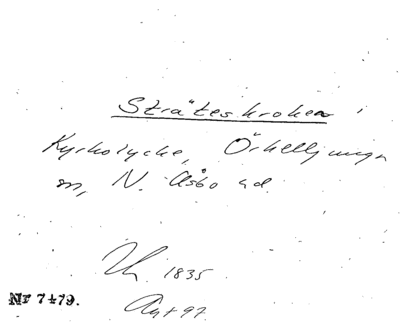 Stråteskroken i
Kyrkolycke, Örkelljunga
sn, N. Åsbo hd.
1835
Nr 7479.